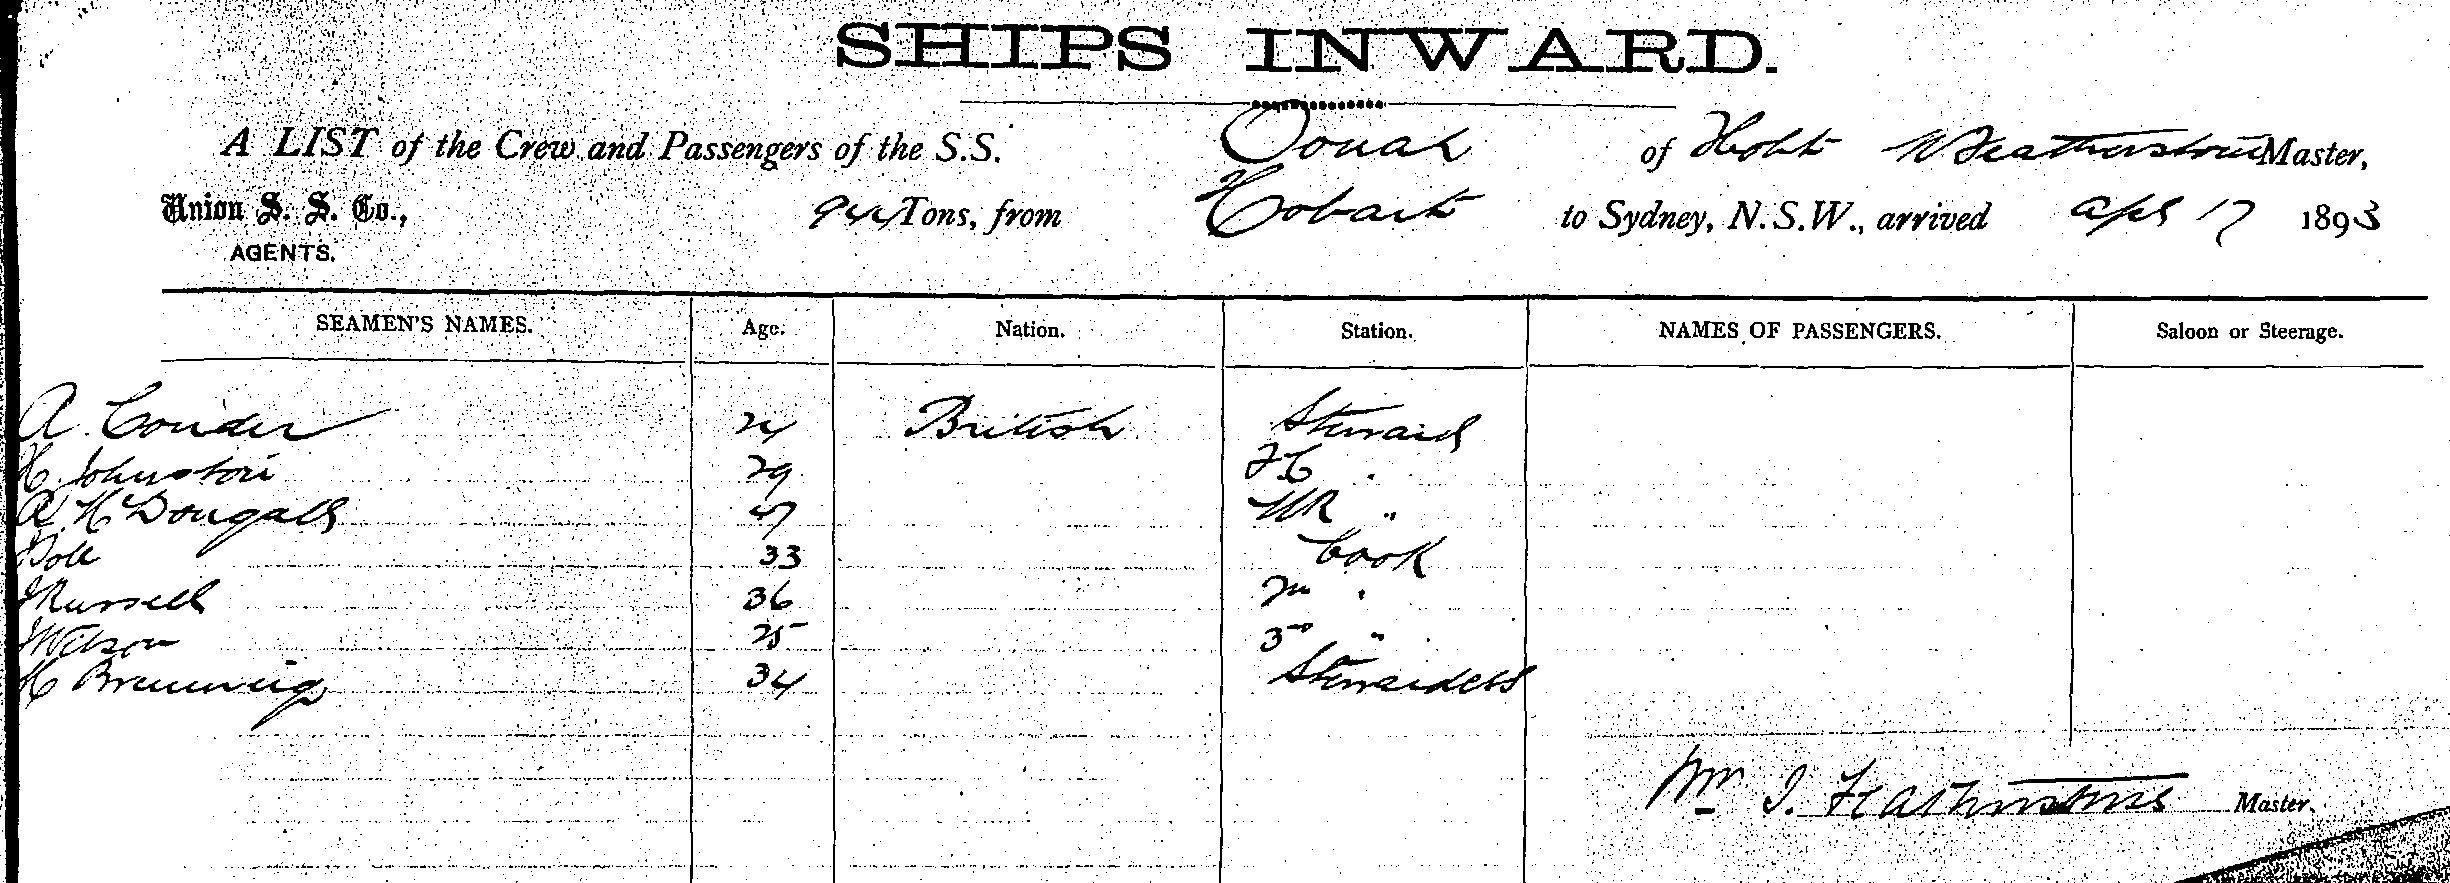 SHIPS INWARD.
A LIST of the Crew and Passengers of the S.S. Oonah of Hobt W Featherstone Master,
Union S. S. Co., Tons, from Hobart to Sydney, N.S.W., arrived Apl 17 1893
AGENTS.
SEAMEN'S NAMES. Age. Nation. Station. NAMES OF PASSENGERS. Saloon or Steerage.
A. Conder 24 British Steward
H. Johnston 29 "
A McDougall 47 "
33 Cook
Russell 36 2nd "
Wilson 25 3rd "
34 Stewardess
Wm J. Featherstone Master.